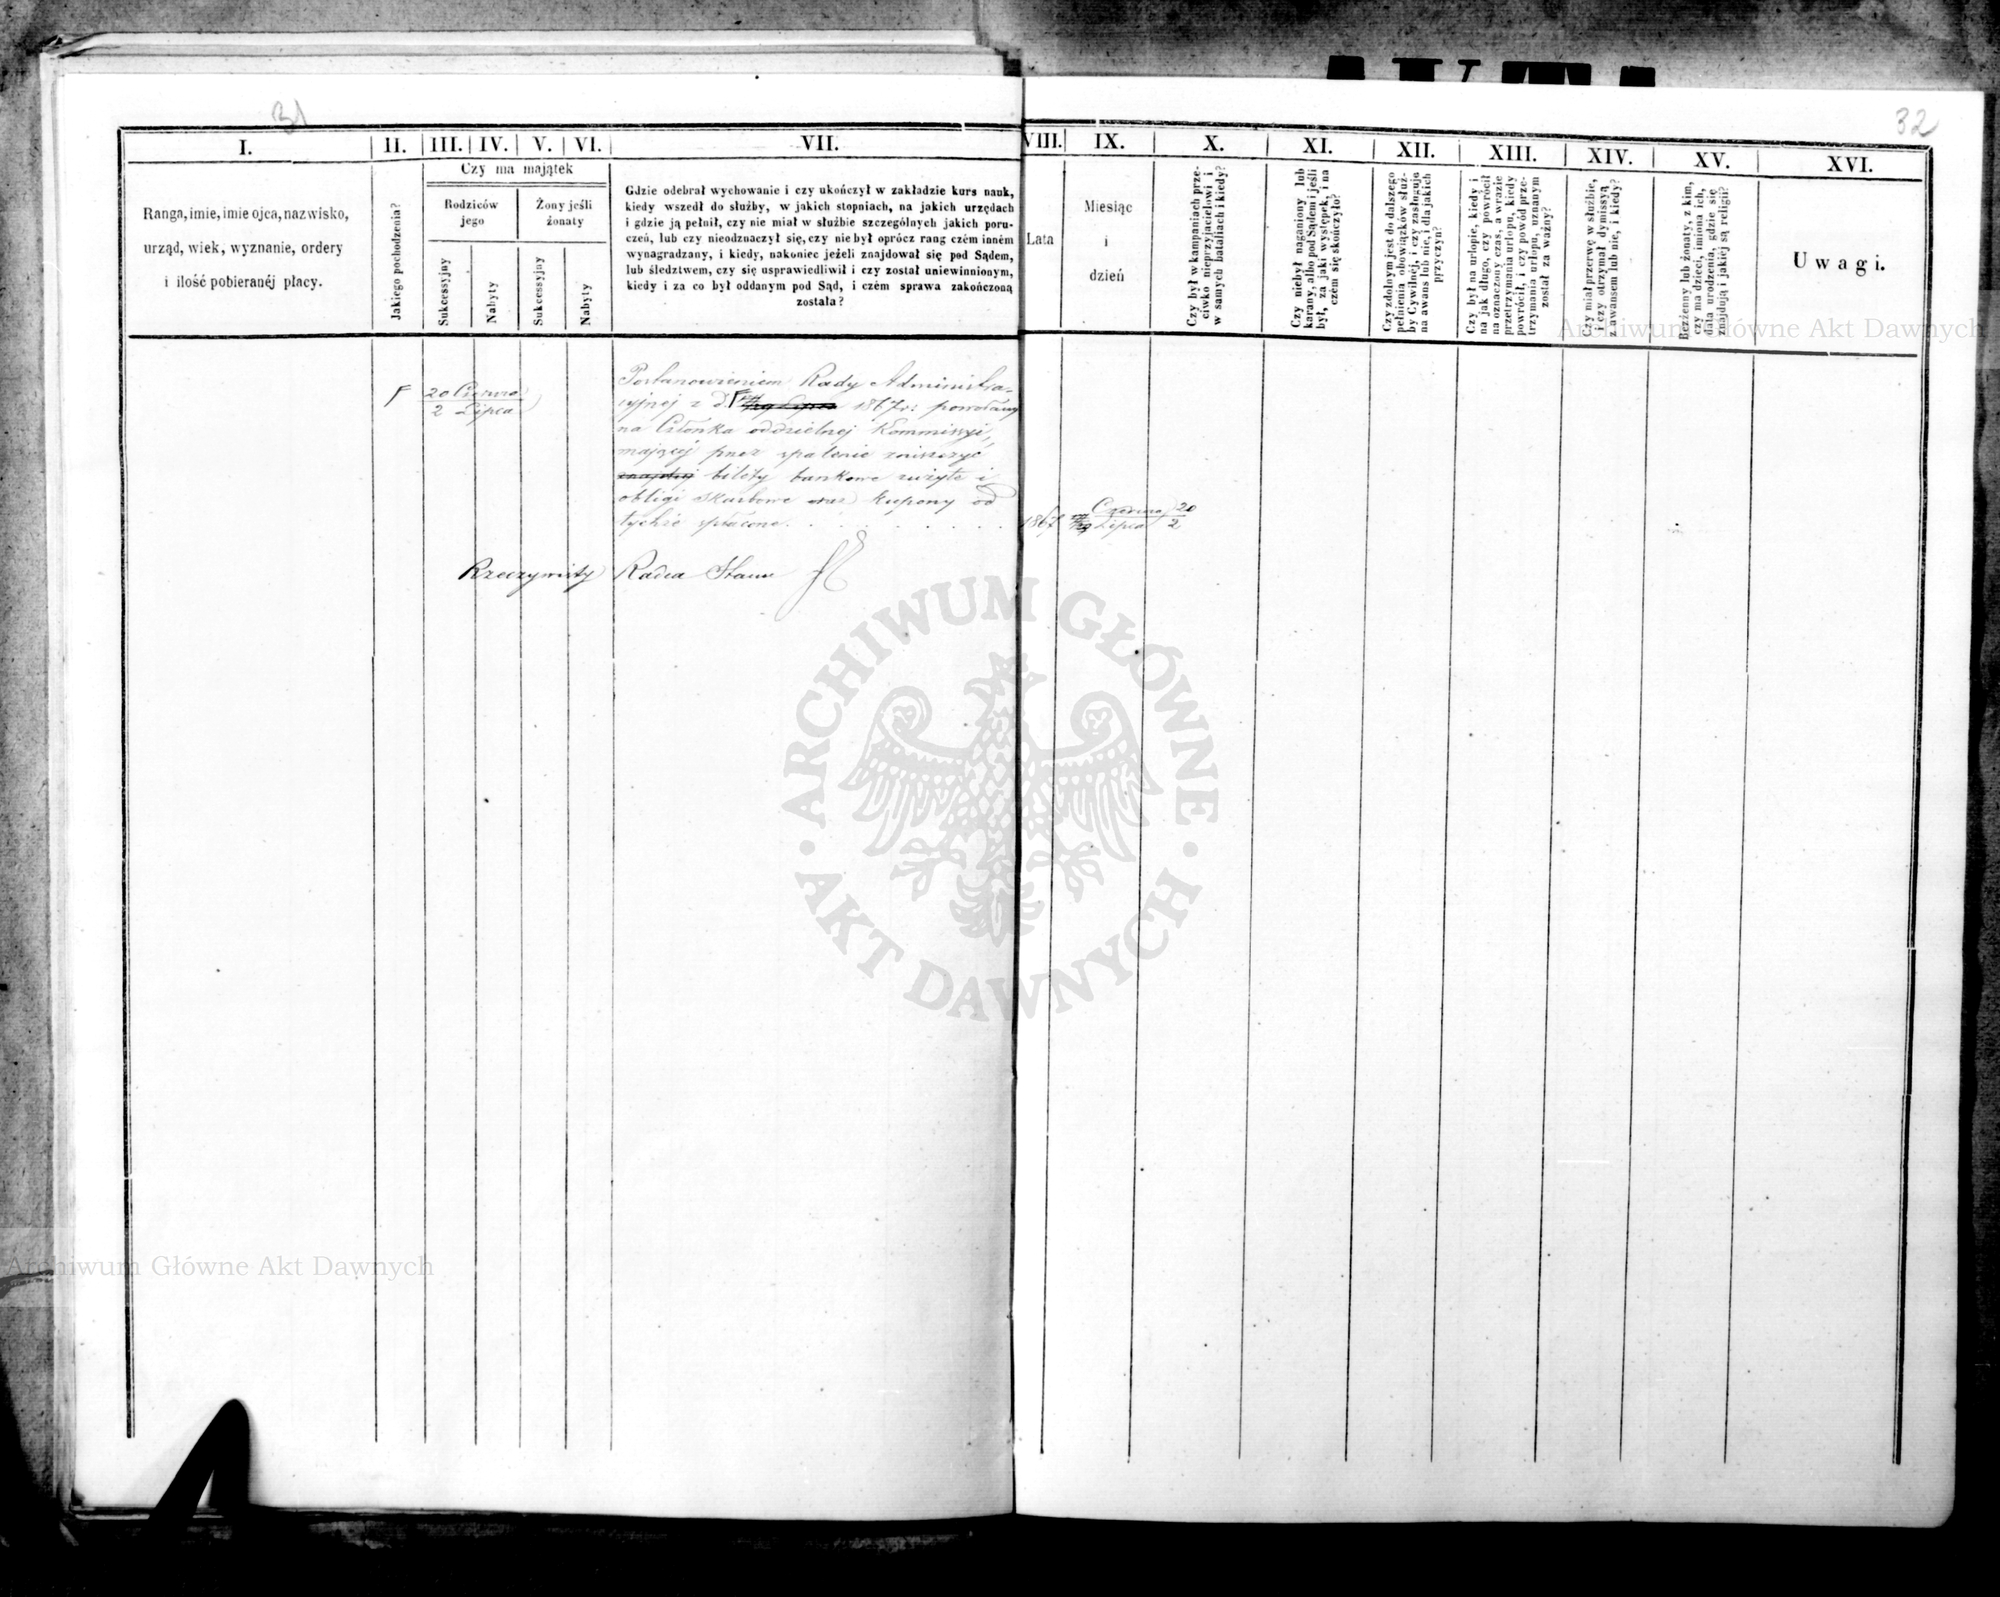 31
32
I.
II.
III.
IV.
V.
VI.
VII.
VIII.
IX.
X.
XI.
XII.
XIII.
XIV.
XV.
XVI.
Ranga, imie, imie ojca, nazwisko,
urząd, wiek, wyznanie, ordery
i ilość pobieranéj płacy.
Jakiego pochodzenia?
Czy ma majątek
Rodziców
jego
Żony jeśli
żonaty
Sukcessyjny
Nabyty
Sukcessyjny
Nabyty
Gdzie odebrał wychowanie i czy ukończył w zakładzie kurs nauk,
kiedy wszedł do służby, w jakich stopniach, na jakich urzędach
i gdzie ją pełnił, czy nie miał w służbie szczególnych jakich poru-
czeń, lub czy nieodznaczył się, czy nie był oprócz rang czém inném
wynagradzany, i kiedy, nakoniec jeżeli znajdował się pod Sądem,
lub śledztwem, czy się usprawiedliwił i czy został uniewinnionym,
kiedy i za co był oddanym pod Sąd, i czém sprawa zakończoną
została?
Lata
Miesiąc
i
dzień
Czy był w kampaniach prze-
ciwko nieprzyjacielowi i
w samych bataliach i kiedy?
Czy niebył naganiony lub
karany, albo pod Sądem i jeśli
był, za jaki występek, i na
czém się skończyło?
Czy zdolnym jest do dalszego
pełnienia obowiązków służ-
by Cywilnéj, i czy zasługuje
na awans lub nie, i dla jakich
przyczyn?
Czy był na urlopie, kiedy i
na jak długo, czy powrócił
na oznaczony czas, a w razie
przetrzymania urlopu, kiedy
powrócił, i czy powód prze-
trzymania urlopu, uznanym
został za ważny?
Czy miał przerwę w służbie,
i czy otrzymał dymissyą
z awansem lub nie, i kiedy?
Bezżenny lub żonaty, z kim,
czy ma dzieci, imiona ich,
data urodzenia, gdzie się
znajdują i jakiéj są religii?
Uwagi.
20 Czerwca
2 Lipca
Postanowieniem Rady Administra-
cyjnej z d. Lipca 1867 r. powołany
na Członka oddzielnej Kommissyi,
mającej przez spalenie zniszczyć
bilety bankowe zużyte i
obligi skarbowe oraz kupony od
tychże spłacone
1867
Czerwca 20
Lipca 2
Rzeczywisty Radca Stanu
Archiwum Główne Akt Dawnych
ARCHIWUM GŁÓWNE · AKT DAWNYCH ·
Archiwum Główne Akt Dawnych